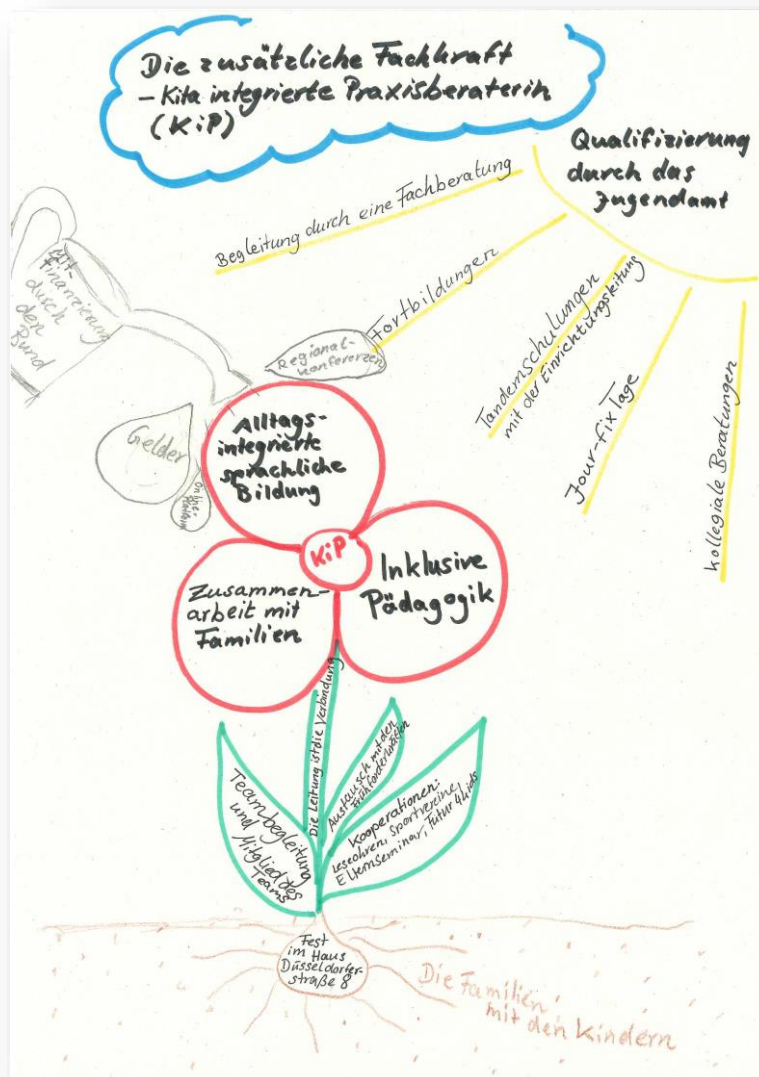 Die zusätzliche Fachkraft
- Kita integrierte Praxisberaterin
(KiP)
Qualifizierung
durch das
Jugendamt
Begleitung durch eine Fachberatung
Fortbildungen
Tandemschulungen
mit der Einrichtungsleitung
Jour-fix Tage
Kollegiale Beratungen
Mit-
finanzierung
dusch
den
Bund
Regional-
konferenzen
Gelder
Online-
Alltags-
integrierte
sprachliche
Bildung
KiP
Inklusive
Pädagogik
Zusammen-
arbeit mit
Familien
Die Leitung ist die Verbindung
Austausch mit den
Frühförderkräften
Kooperationen:
Leseohren, Sportvereine,
Elternseminar, Futur 4 kids
Teambegleitung
und
Mitglied des
Teams
Fest
im Haus
Düsseldorfer-
straße 8
Die Familien
mit den Kindern